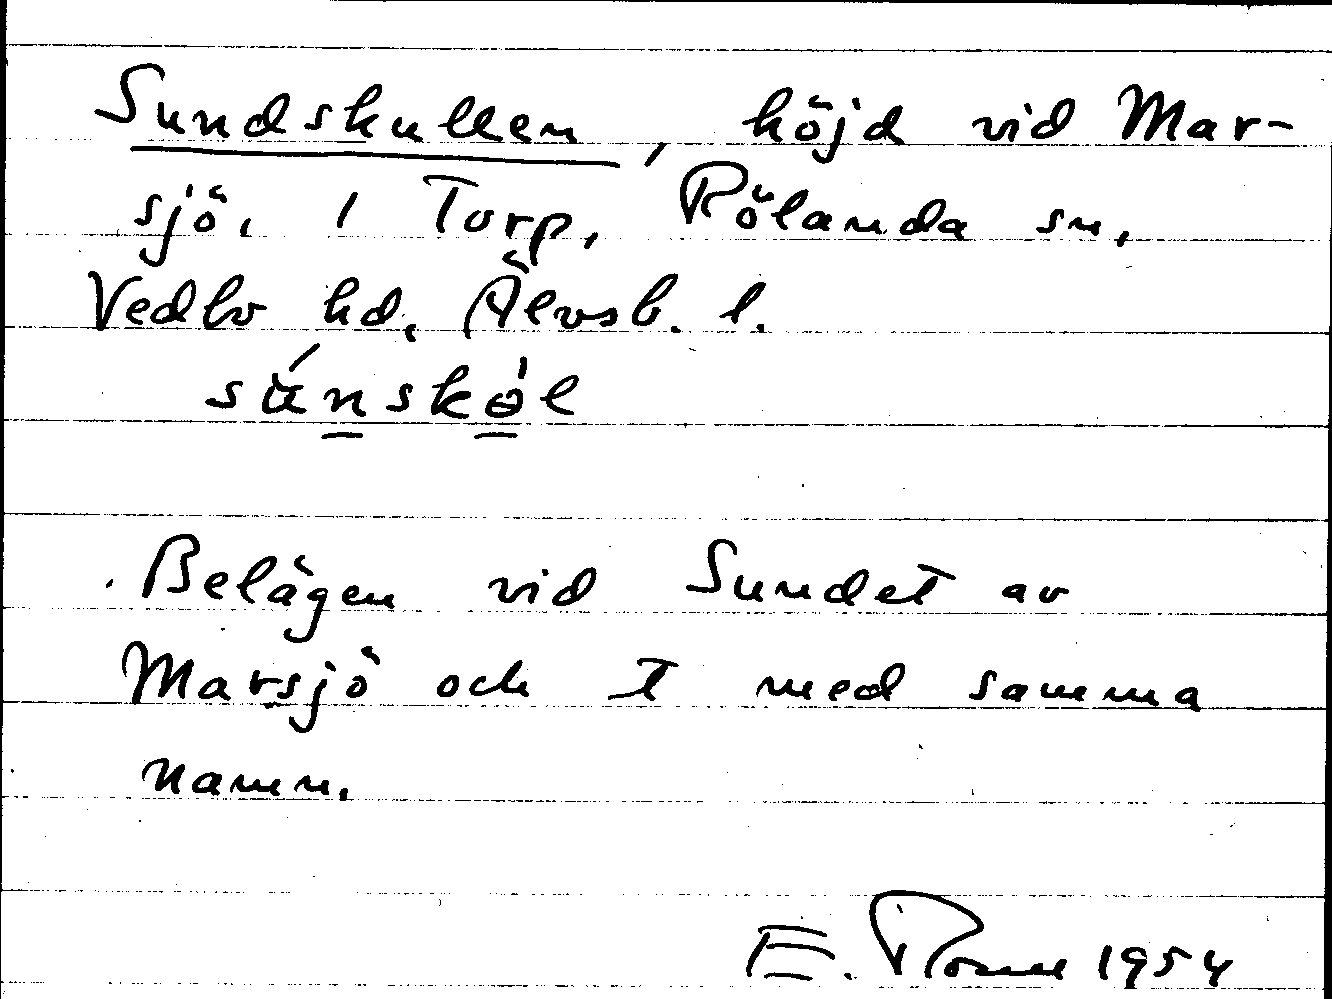 Sundskullen, höjd vid Mar-
sjö. 1 Torp, Rölanda sn,
Vedbo hd, Älvsb. l.
Belägen vid Sundet av
Marsjö och T med samma
namn.
E. 1954